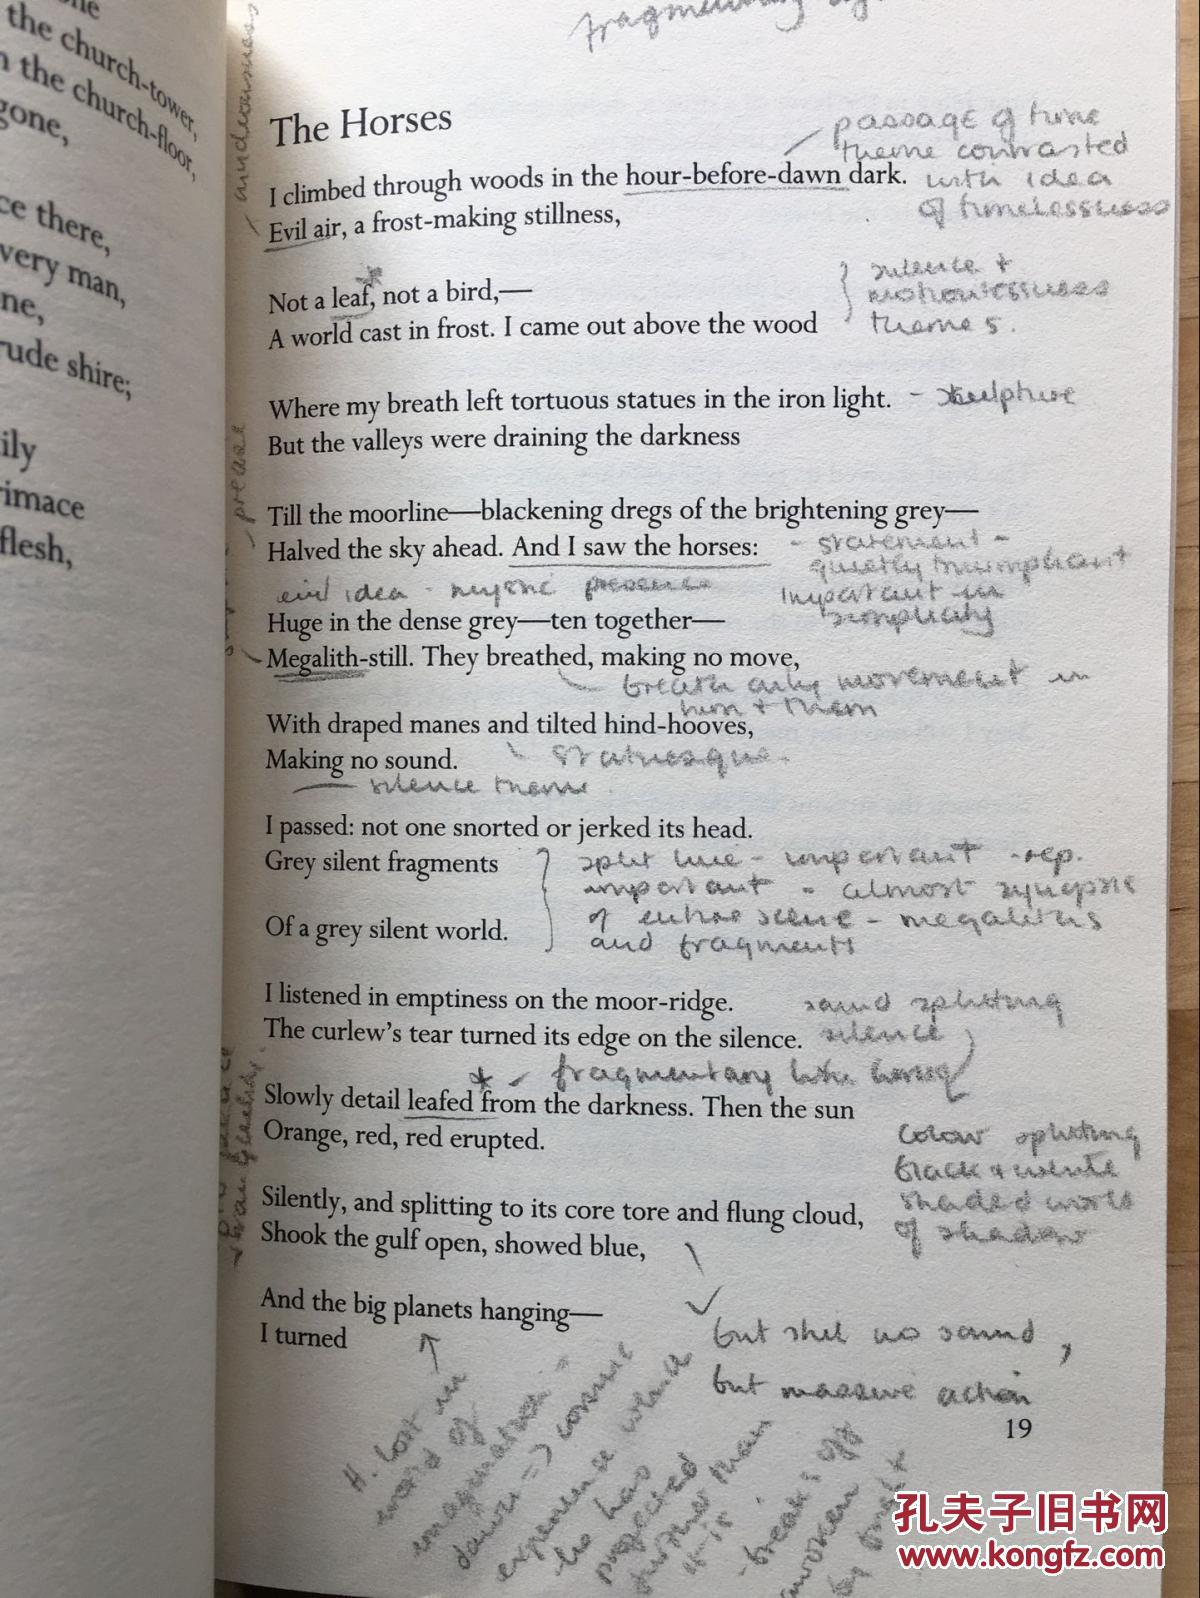 the church-tower,
the church-floor,
gone,
ce there,
very man,
ne,
rude shire;
ily
rimace
flesh,
fragmentary
The Horses
passage of time
theme contrasted
I climbed through woods in the hour-before-dawn dark. with idea
of timelessness
Evil air, a frost-making stillness,
silence +
Not a leaf, not a bird,—
motionlessness
A world cast in frost. I came out above the wood
themes.
Where my breath left tortuous statues in the iron light. - sculpture
But the valleys were draining the darkness
Till the moorline—blackening dregs of the brightening grey—
Halved the sky ahead. And I saw the horses: - statement -
quietly triumphant
evil idea - presence
important in
simplicity
Huge in the dense grey—ten together—
Megalith-still. They breathed, making no move,
breath only movement in
him + them
With draped manes and tilted hind-hooves,
statuesque.
Making no sound.
silence theme
I passed: not one snorted or jerked its head.
Grey silent fragments
split line - important - rep.
important - almost synopsis
of entire scene - megaliths
and fragments
Of a grey silent world.
I listened in emptiness on the moor-ridge.
sound splitting
The curlew's tear turned its edge on the silence. silence
* - fragmentary like horses
Slowly detail leafed from the darkness. Then the sun
Orange, red, red erupted.
colour splitting
black + white
shaded world
of shadow
Silently, and splitting to its core tore and flung cloud,
Shook the gulf open, showed blue,
And the big planets hanging—
I turned
but still no sound,
but massive action
H. lost in
world of
imagination
dawn => cosmic
experience which
he has
projected
further than
it is
- break off
broken
by
19
孔夫子旧书网
www.kongfz.com